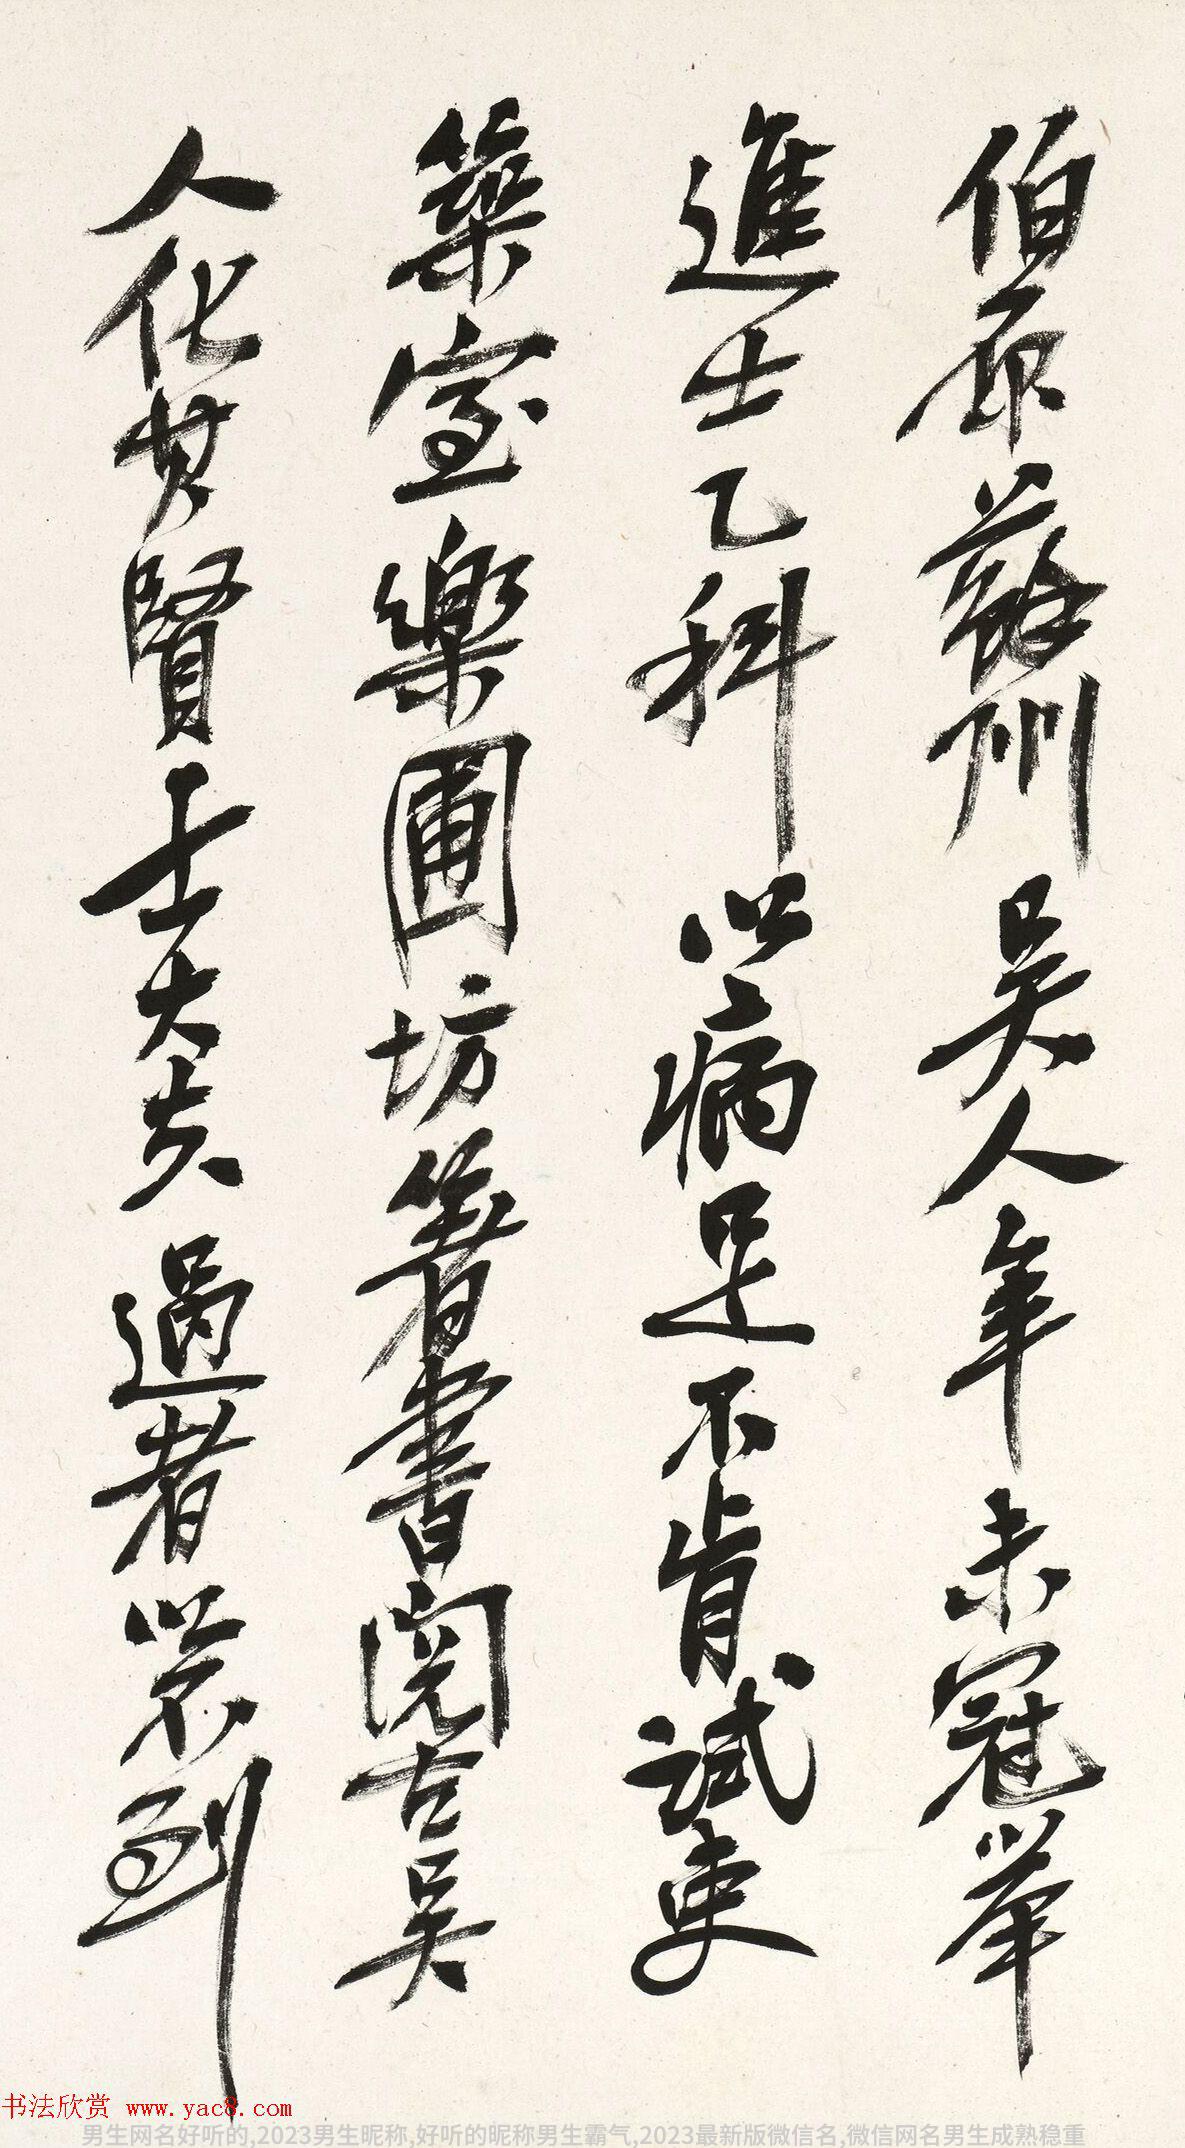 伯原蘇州吳人年未冠舉
進士乙科以病足不肯試吏
築室樂圃坊著書閱古吳
人化其賢士大夫過者以不到
书法欣赏 www.yac8.com
男生网名好听的,2023男生昵称,好听的昵称男生霸气,2023最新版微信名,微信网名男生成熟稳重